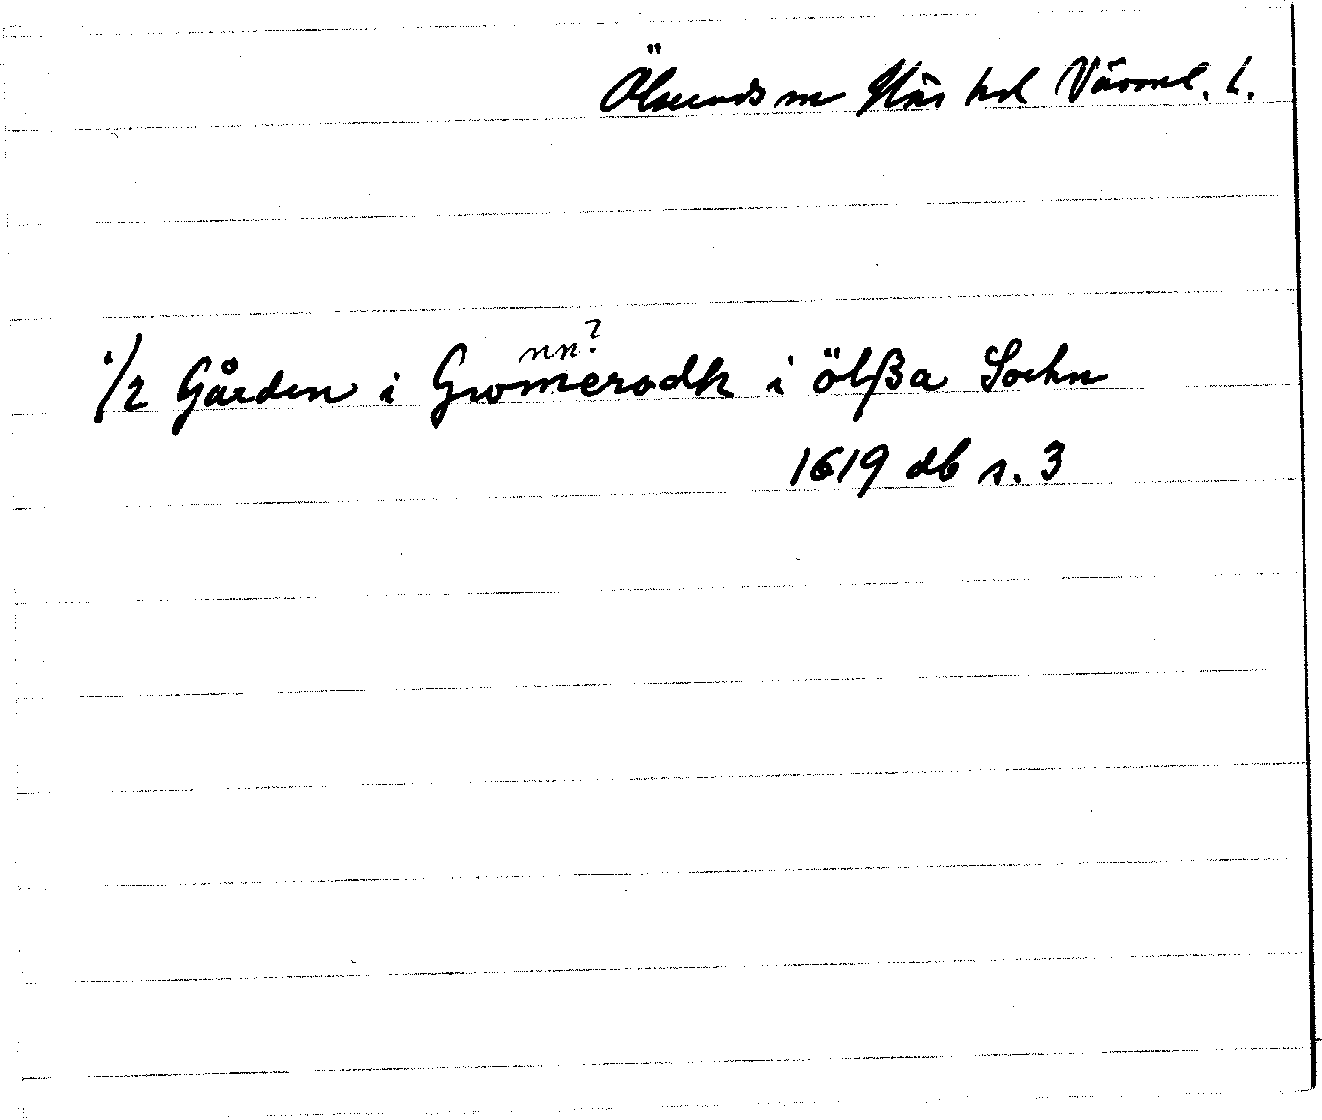 Ölserud sn Näs hd Värml. l.
nn?
1/2 Gården i Gromerodh i ölßa Sochn
1619 db s. 3